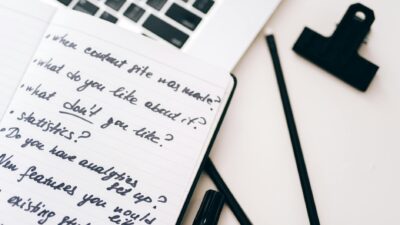 . when current site was made?
. what do you like about it?
. what don't you like?
. statistics?
. Do you have analytics
set up?
New features you would
like
existing